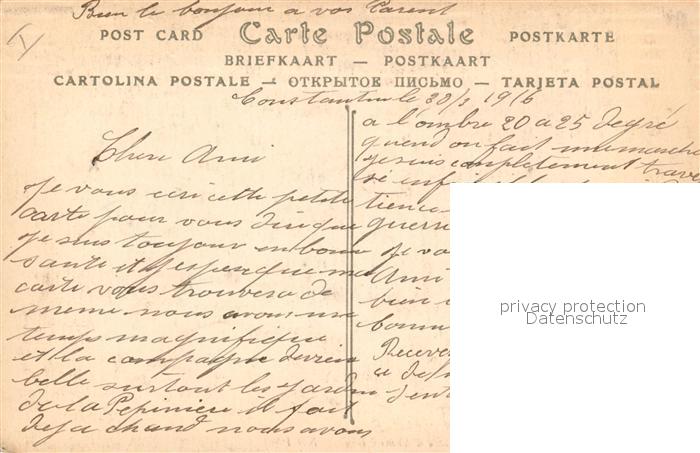 Bien le bonjour a vos Parent
POST CARD Carte Postale POSTKARTE
BRIEFKAART — POSTKAART
CARTOLINA POSTALE — ОТКРЫТОЕ ПИСЬМО — TARJETA POSTAL
Constantine le 28/3 1916
Cher Ami
Je vous ecri cette petite
carte pour vous dire que
je suis toujour en bonne
sante et j'espere que ma
carte vous trouvera de
meme nous avons une
temps magnifique
et la compagne devien
belle surtout les Jardin
de la Pepiniere il fait
deja chaud nous avons
a l'ombre 20 a 25 degré
quand on fait une marche
je suis completement trave
tience
guerre
Je vo
Ami
bien
bonn
Recevez
privacy protection
Datenschutz